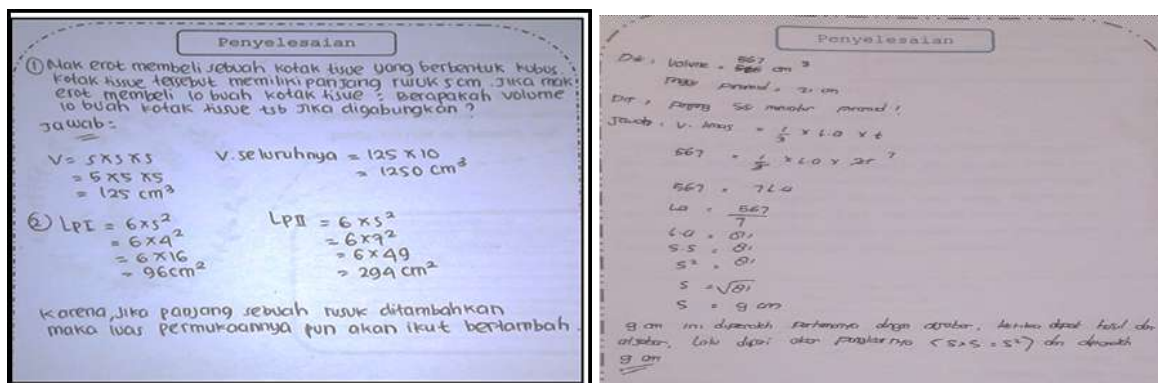 Penyelesaian
① Mak erot membeli sebuah kotak tisue yang berbentuk kubus.
kotak tissue tersebut memiliki panjang rusuk 5 cm. Jika mak
erot membeli 10 buah kotak tisue. Berapakah volume
10 buah kotak tissue tsb jika digabungkan?
Jawab:
V = s x s x s
= 5 x 5 x 5
= 125 cm³
V. seluruhnya = 125 x 10
= 1250 cm³
② LP I = 6 x s²
= 6 x 4²
= 6 x 16
= 96 cm²
LP II = 6 x s²
= 6 x 7²
= 6 x 49
= 294 cm²
Karena, Jika panjang sebuah rusuk ditambahkan
maka luas permukaannya pun akan ikut bertambah
Penyelesaian
Dik : Volume = 567 cm³
Tinggi piramid = 21 cm
Dit : panjang sisi piramid !
Jawab : V. limas = 1/3 x L.a x t
567 = 1/3 x La x 21 7
567 = 7 La
La = 567/7
L.a = 81
s.s = 81
s² = 81
s = √81
s = 9 cm
9 cm ini diperoleh pertamanya dengan
lalu dicari akar (s x s = s²) dan
9 cm